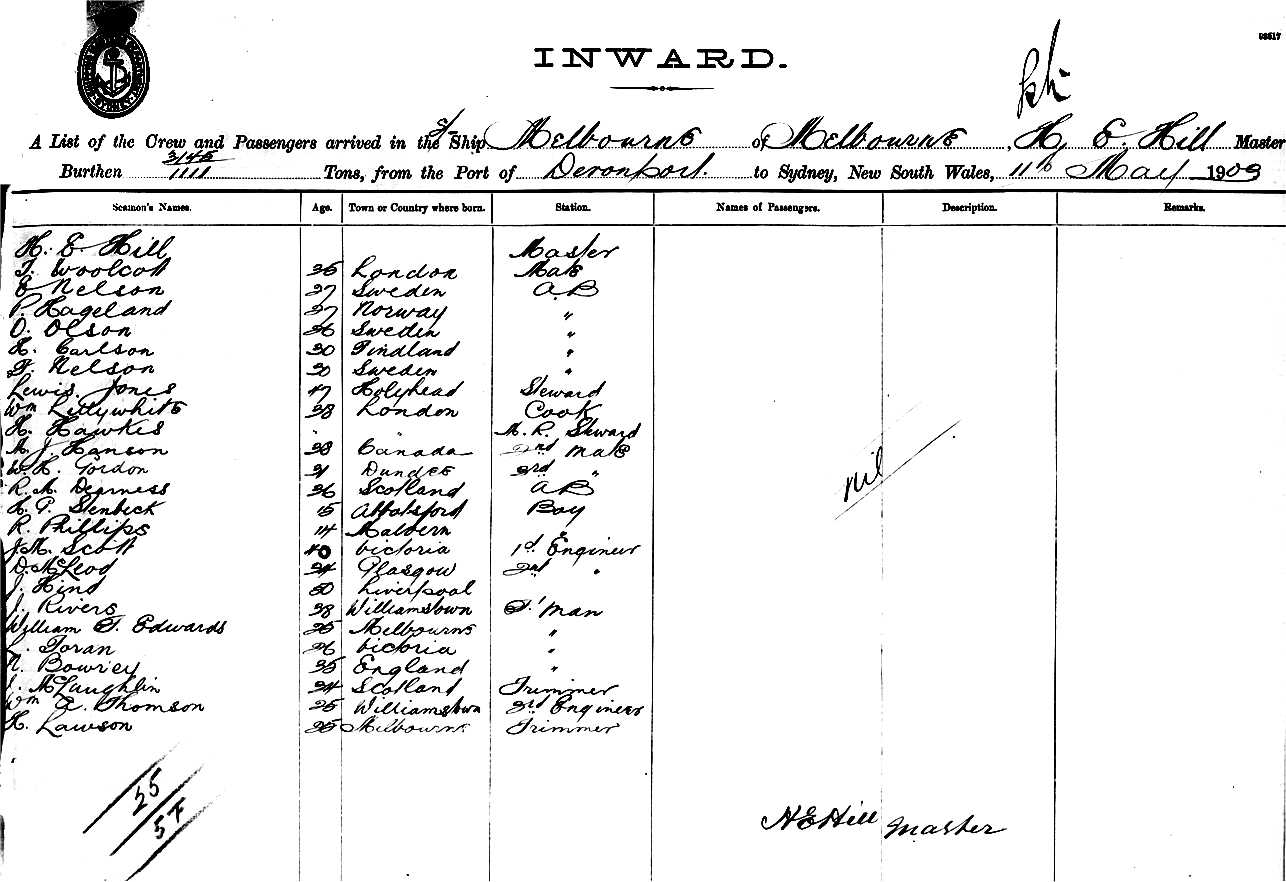 08517
INWARD.
A List of the Crew and Passengers arrived in the S/- Ship Melbourne of Melbourne, H. E. Hill Master
Burthen 3145 1111 Tons, from the Port of Devonport. to Sydney, New South Wales, 11th May 1909
Seamen's Names. Age. Town or Country where born. Station. Names of Passengers. Description. Remarks.
H. E. Hill Master
T. Woolcott 36 London Mate
E Nelson 27 Sweden A.B
P. Hageland 27 Norway "
O. Olson 26 Sweden "
H. Carlson 30 Findland "
F. Nelson 30 Sweden "
Lewis Jones 47 Holyhead Steward
Wm Lillywhite 38 London Cook
H. Hawkes " " M. R. Steward
A. J. Hanson 38 Canada 2nd Mate
W. H. Gordon 31 Dundee 3rd "
R. M. Dearness 36 Scotland AB
H. P. Stenbeck 15 Abbotsford Boy
R. Phillips 14 Malvern
J. M. Scott 40 Victoria 1st Engineer
D. McLeod 34 Glasgow 2nd "
J. Hind 50 Liverpool
J. Rivers 38 Williamstown F'man
William T. Edwards 25 Melbourne "
L. Toran 26 Victoria "
Bowrey 35 England "
J. McLaughlin 24 Scotland Trimmer
Wm A. Thomson 25 Williamstown 3rd Engineer
H. Lawson 25 Melbourne Trimmer
nil
25
5F
H E Hill Master